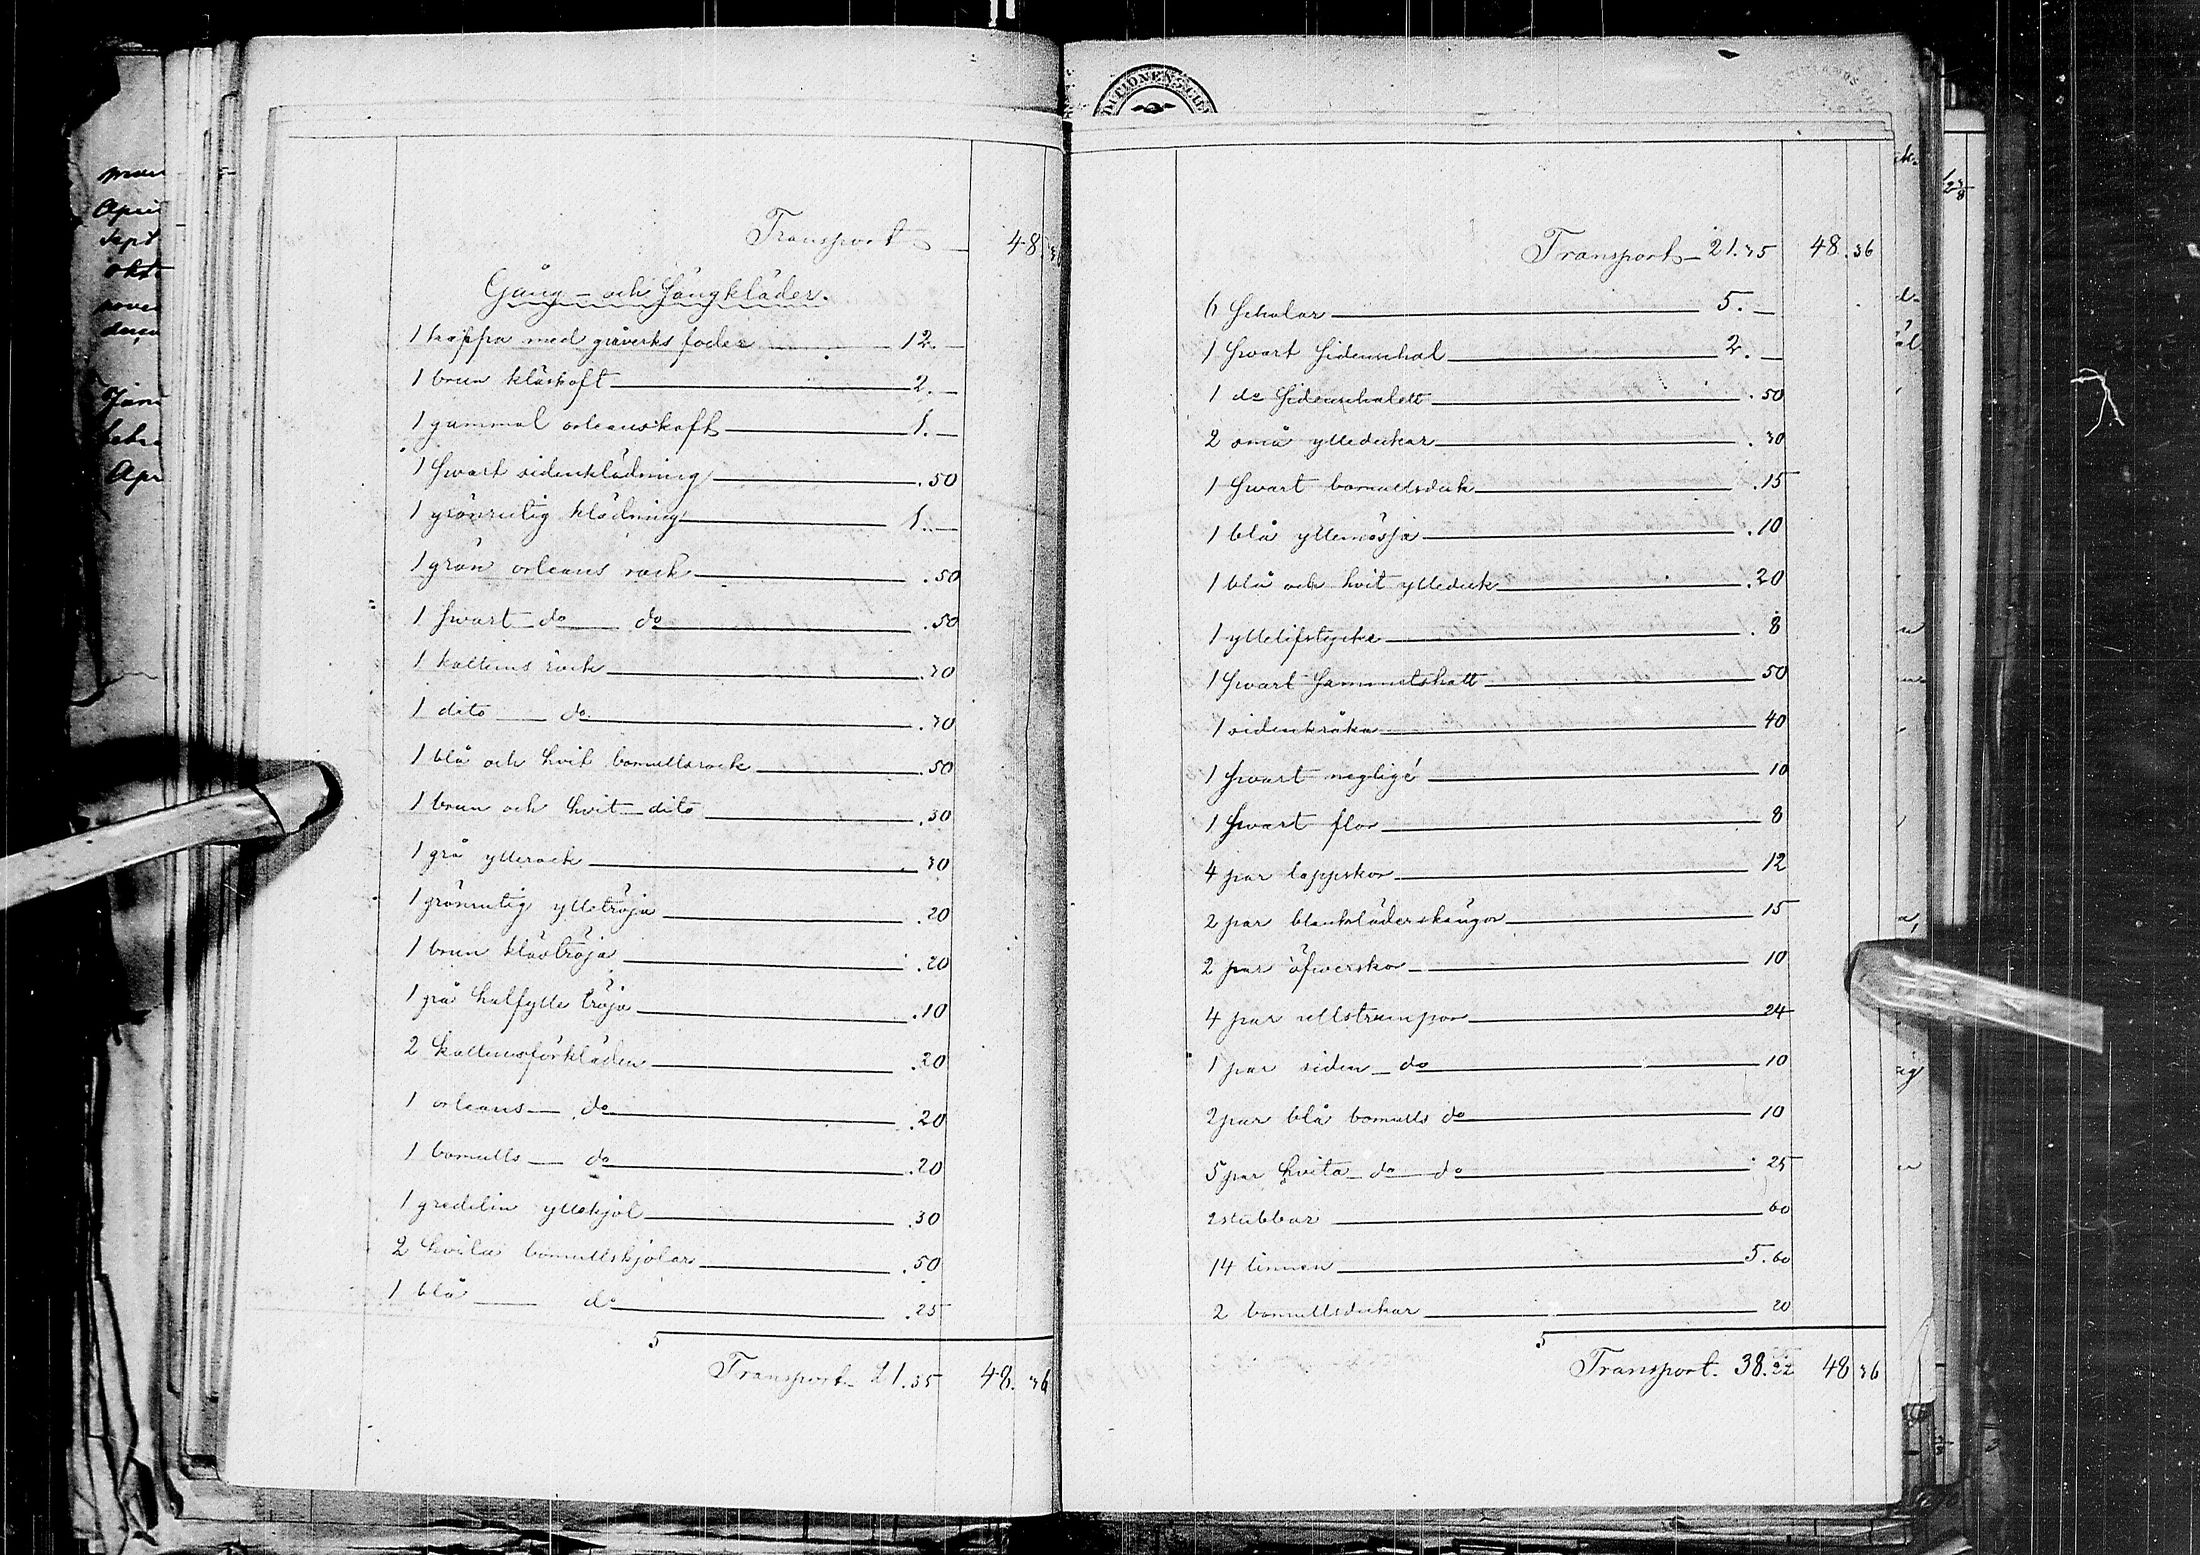 Transport — 48.36
Gång- och Sängkläder.
1 kappa med gråverks foder 12.—
1 brun kläskoft 2.—
1 gammal orleanskoft 1.—
1 Swart sidenklädning .50
1 grönrutig klädning 1.—
1 grön orleans rock .50
1 Swart do do .50
1 kattuns rock .30
1 dito do .30
1 blå och hvit bomullsrock .50
1 brun och hvit dito .30
1 grå yllerock .30
1 grönrutig ylletröja .20
1 brun klädtröja .20
1 grå halfylle tröja .10
2 kattunsförkläden .20
1 orleans do .20
1 bomulls do .20
1 gredelin yllekjol .30
2 hvita bomullskjolar .50
1 blå do .25
Transport 21.35 48.36
ma
April
Sept
okt
nove
dece
Janu
febr
Apr
Transport 21.35 48.36
6 Schalar 5.—
1 Swart Sidenschal 2.—
1 do Sidenschalett .50
2 små ylledukar .30
1 Swart bomullsduk .15
1 blå yllemössja .10
1 blå och hvit ylleduk .20
1 yllelifstycke .8
1 Swart Sammetshatt 50
1 sidenkråka 40
1 Swart negligé 10
1 Swart flor 8
4 par lappskor 12
2 par blankläderskängor 15
2 par öfwerskor 10
4 par ullstrumpor 24
1 par siden do 10
2 par blå bomulls do 10
5 par hvita do do 25
2 stubbar 60
14 linnen 5.60
2 bomullsdukar 20
Transport. 38.22 48 36